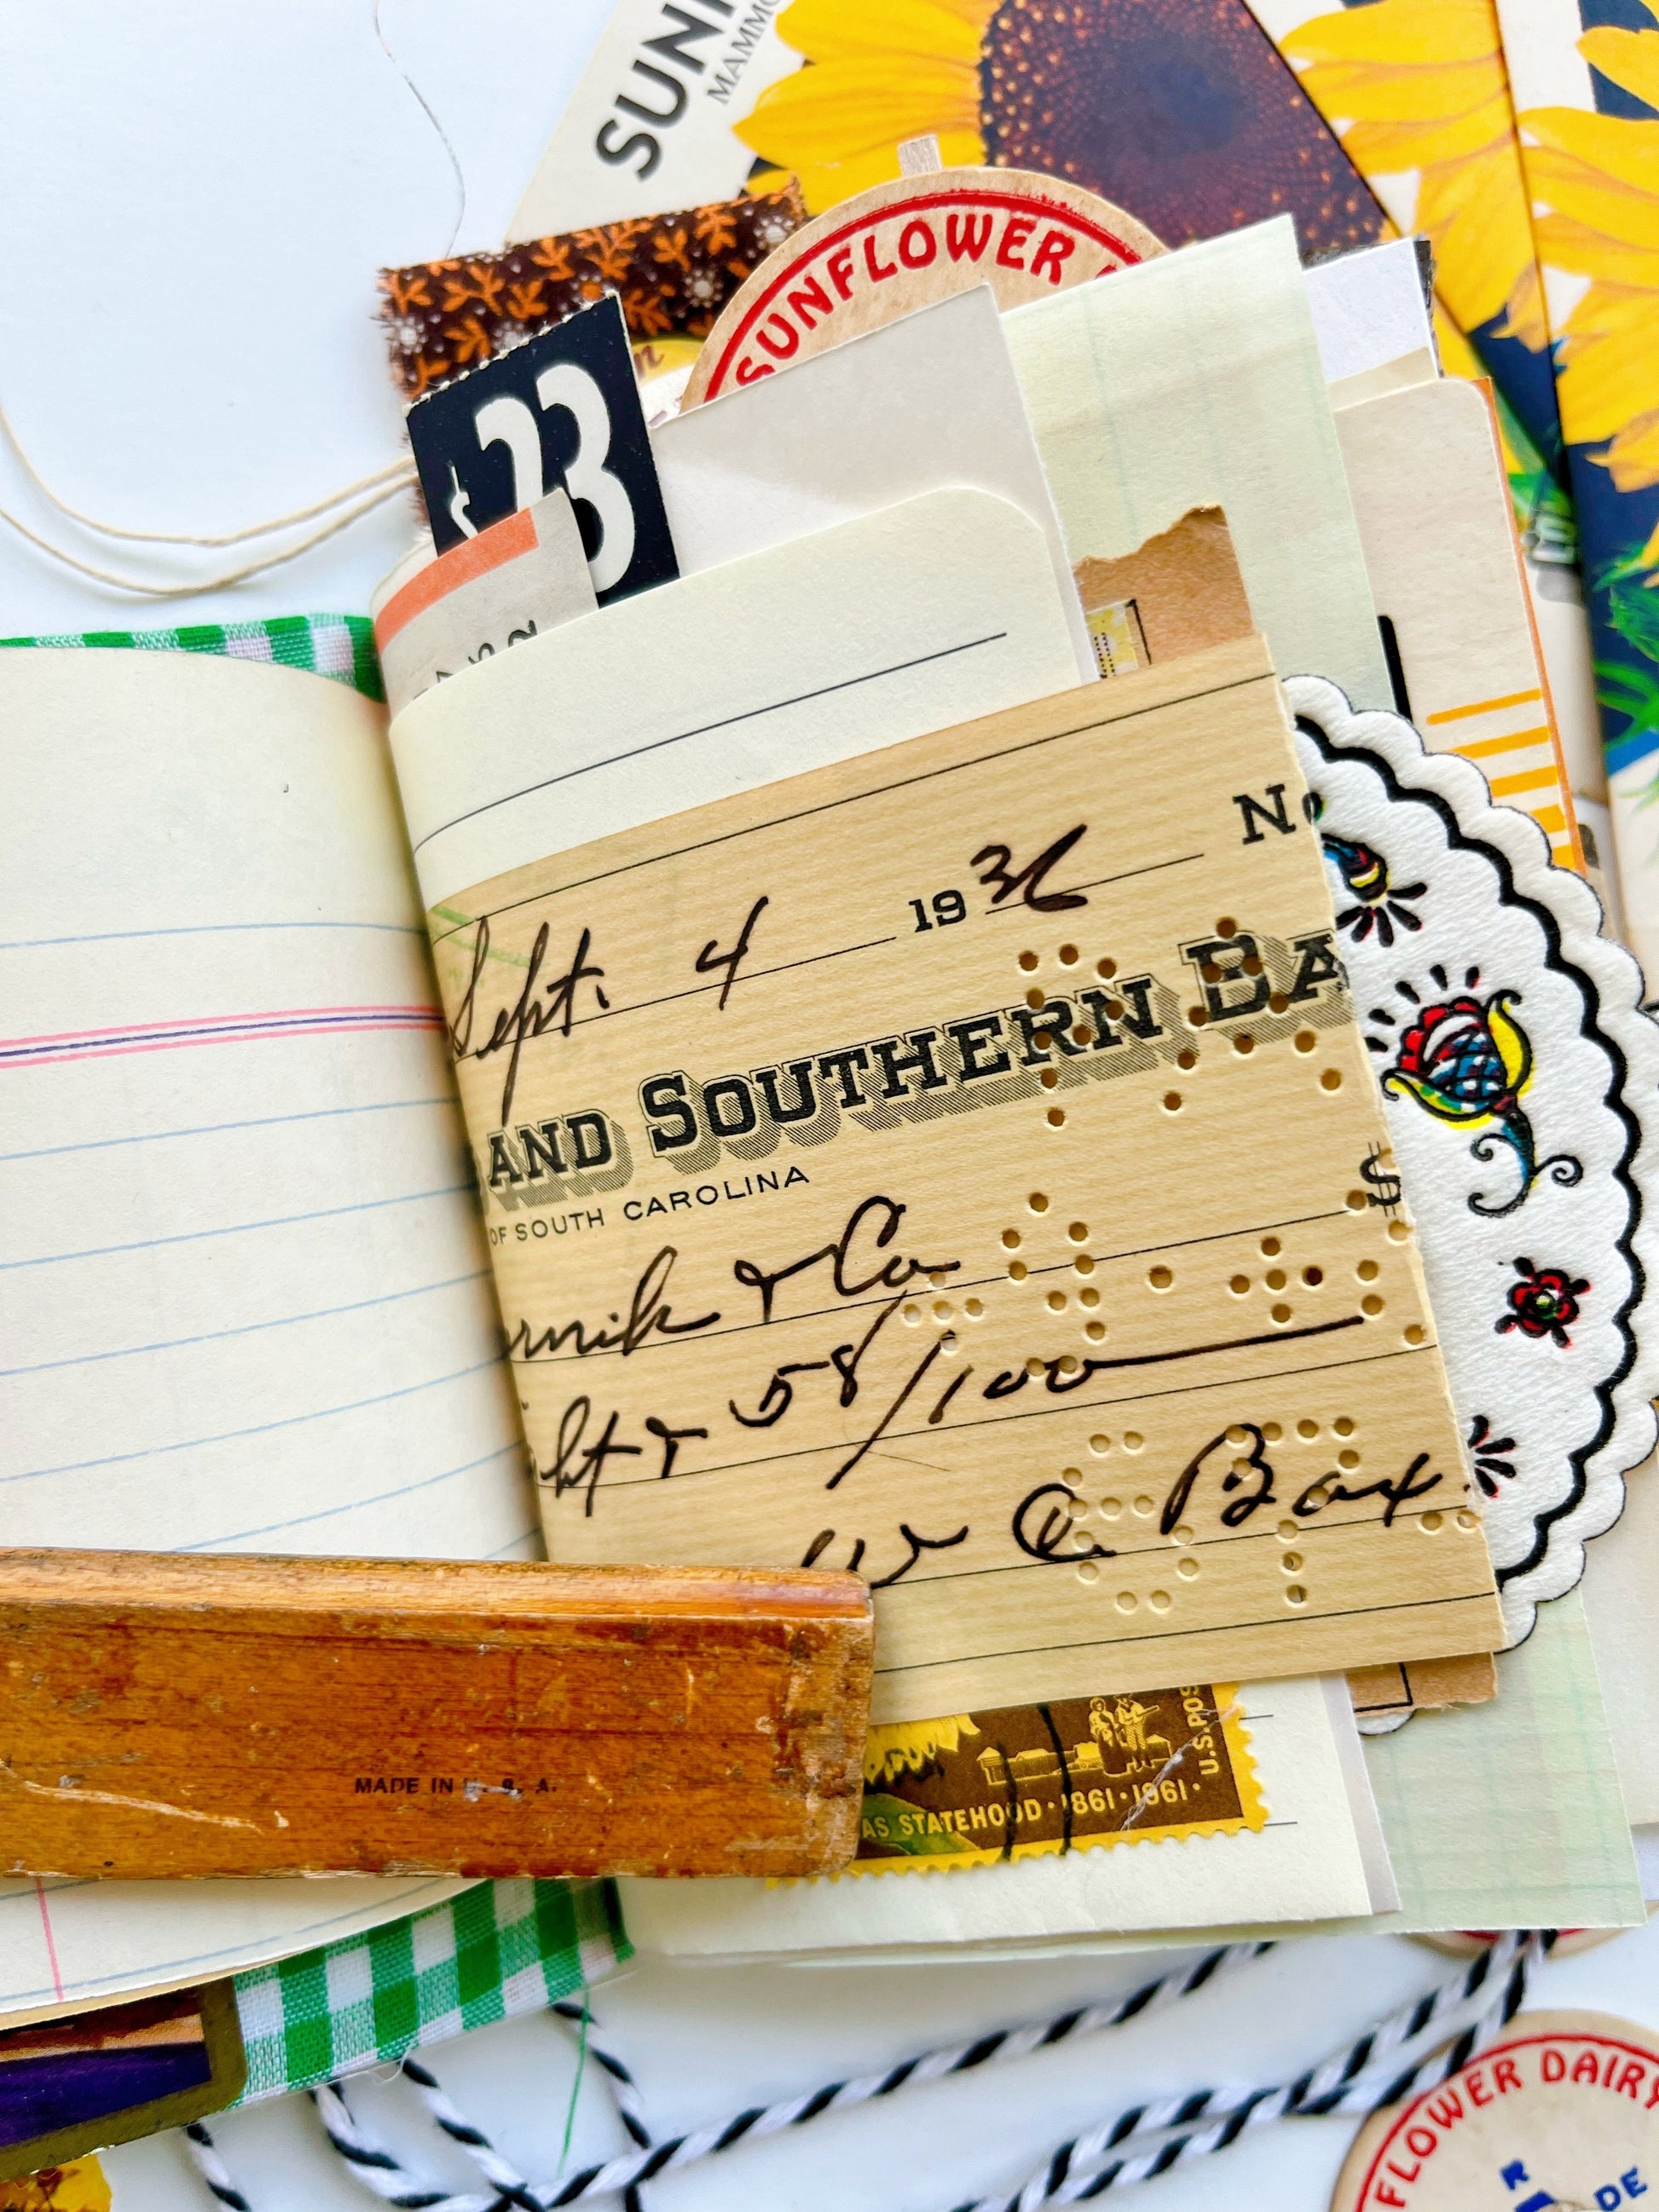 SUN
MAMMO
SUNFLOWER
$23
No
Sept. 4 1936
AND SOUTHERN BA
OF SOUTH CAROLINA
$
rnik & Co
ht & 58/100
W Q Bax
MADE IN U. S. A.
U.S. POS
AS STATEHOOD · 1861 · 1961 ·
FLOWER DAIRY
R
DE